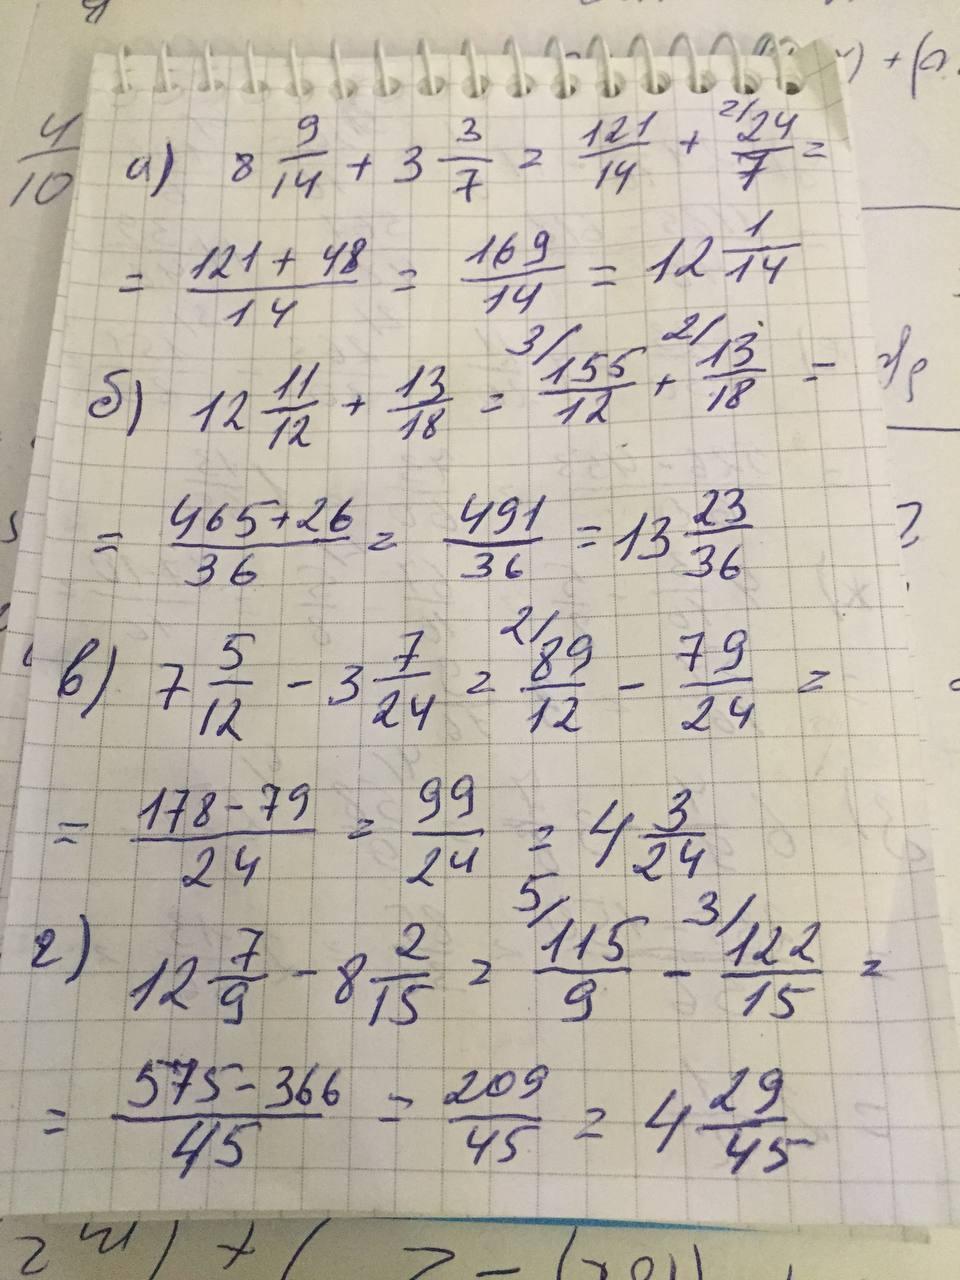 4/10
а) 8 9/14 + 3 3/7 = 121/14 + 2/ 24/7 =
= (121 + 48)/14 = 169/14 = 12 1/14
б) 12 11/12 + 13/18 = 3/ 155/12 + 2/ 13/18 =
= (465 + 26)/36 = 491/36 = 13 23/36
в) 7 5/12 - 3 7/24 = 2/ 89/12 - 79/24 =
= (178 - 79)/24 = 99/24 = 4 3/24
г) 12 7/9 - 8 2/15 = 5/ 115/9 - 3/ 122/15 =
= (575 - 366)/45 = 209/45 = 4 29/45